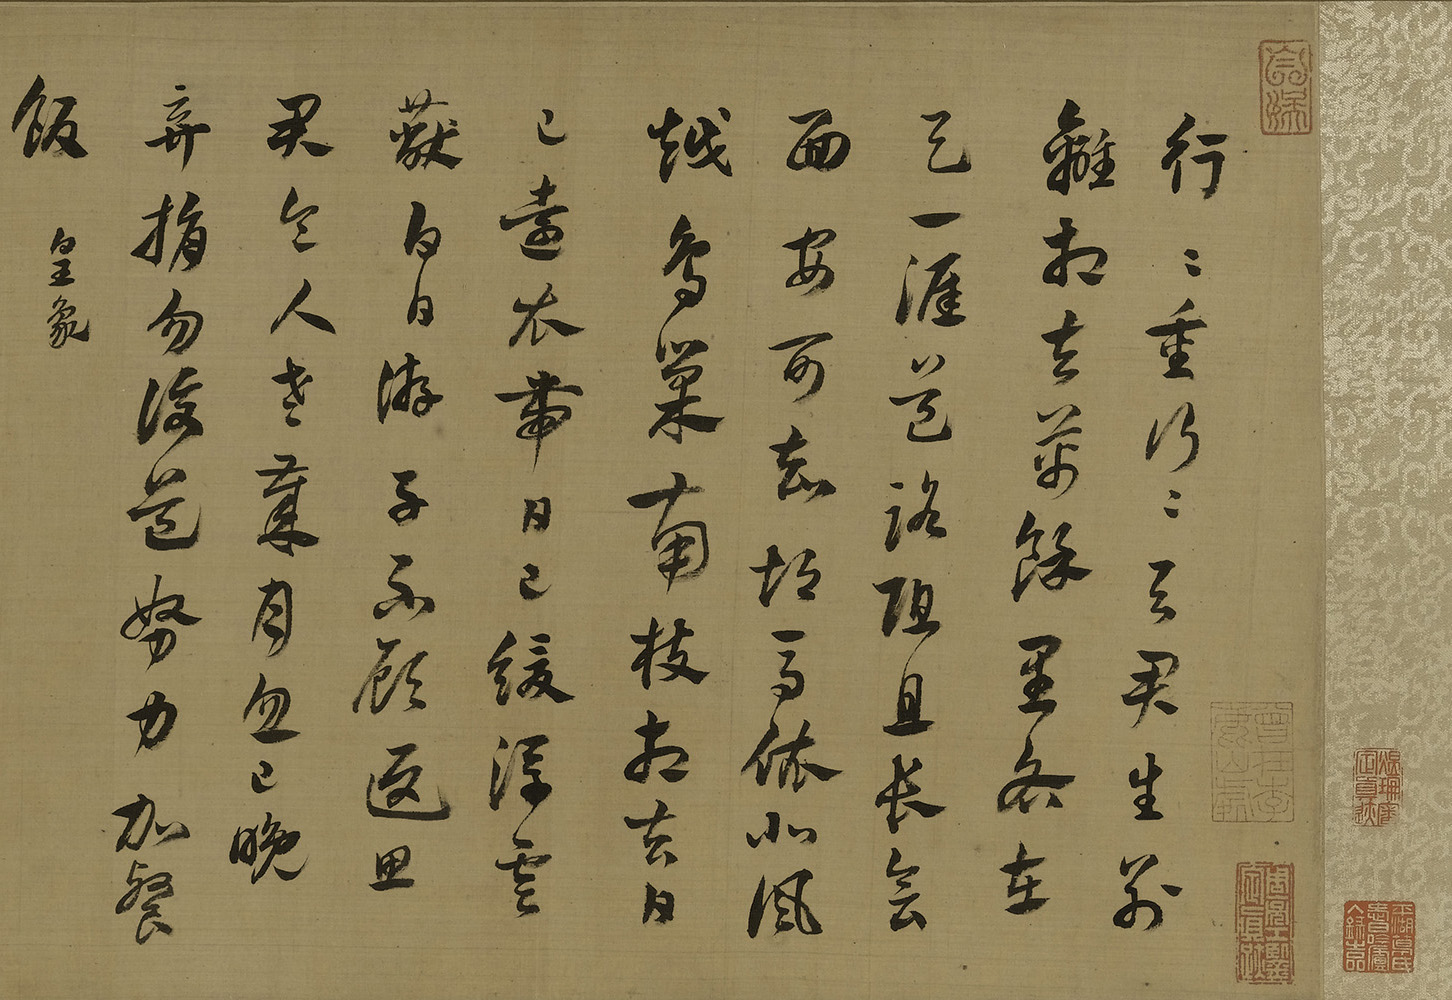 行〻重行〻与君生别
離相去萬餘里各在
天一涯道路阻且長会
面安可知胡馬依北風
越鳥巢南枝相去日
已遠衣帶日已緩浮雲
蔽白日游子不顧返思
君令人老歲月忽已晚
弃捐勿復道努力加餐
飯 皇象